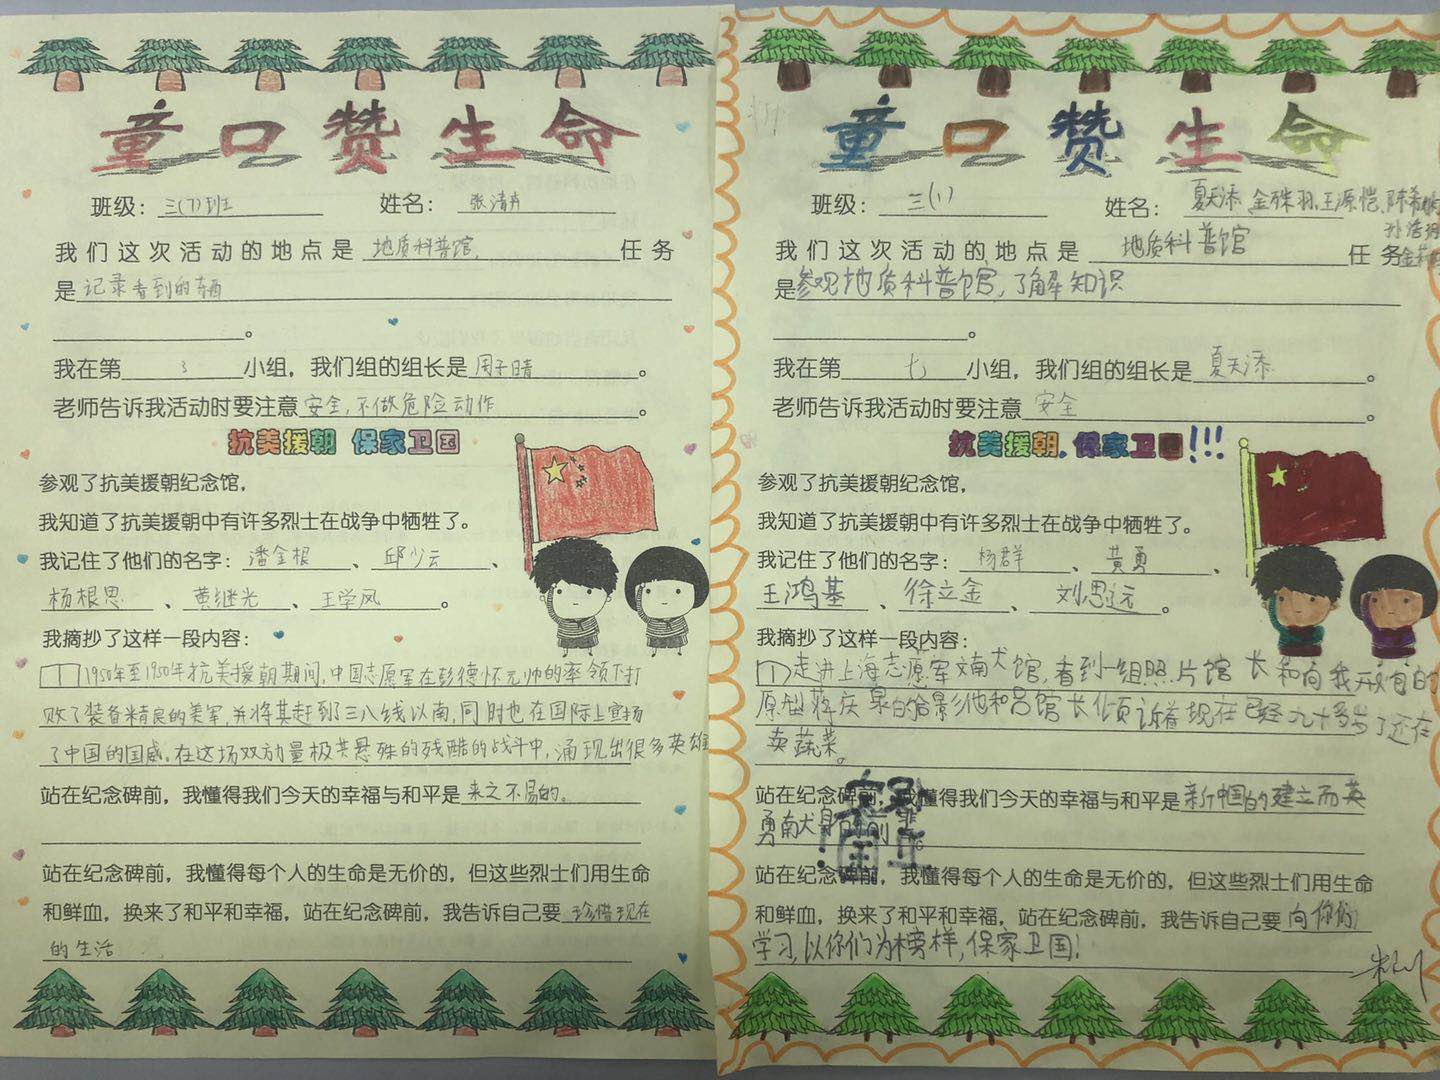 童口赞生命
班级：三(7)班 姓名：张清卉
我们这次活动的地点是 地质科普馆 任务
是 记录看到的东西
。
我在第 3 小组，我们组的组长是 周子晴 。
老师告诉我活动时要注意 安全,不做危险动作 。
抗美援朝 保家卫国
参观了抗美援朝纪念馆，
我知道了抗美援朝中有许多烈士在战争中牺牲了。
我记住了他们的名字： 潘全根 、 邱少云 、
杨根思 、 黄继光 、 王学风 。
我摘抄了这样一段内容：
1950年至1950年抗美援朝期间,中国志愿军在彭德怀元帅的率领下打
败了装备精良的美军,并将其赶到了三八线以南,同时也在国际上宣扬
了中国的国威。在这场双方力量极其悬殊的残酷的战斗中,涌现出很多英雄
站在纪念碑前，我懂得我们今天的幸福与和平是 来之不易的。
站在纪念碑前，我懂得每个人的生命是无价的，但这些烈士们用生命
和鲜血，换来了和平和幸福，站在纪念碑前，我告诉自己要 珍惜现在
的生活
童口赞生命
班级： 三(1) 姓名： 夏天添,金殊羽,王源恺,陈希
我们这次活动的地点是 地质科普馆 任务
是 参观地质科普馆,了解知识
。
我在第 七 小组，我们组的组长是 夏天添 。
老师告诉我活动时要注意 安全 。
抗美援朝,保家卫国!!!
参观了抗美援朝纪念馆，
我知道了抗美援朝中有许多烈士在战争中牺牲了。
我记住了他们的名字： 杨群 、 黄勇 、
王鸿基 、 徐立金 、 刘思远 。
我摘抄了这样一段内容：
走进上海志愿军文献馆,看到一组照片馆长和向我开炮的
原型蒋庆泉的合影他和吕馆长倾诉着现在已经九十多岁了还在
卖蔬菜。
站在纪念碑前，我懂得我们今天的幸福与和平是 新中国的建立而英
勇献身的前辈
站在纪念碑前，我懂得每个人的生命是无价的，但这些烈士们用生命
和鲜血，换来了和平和幸福，站在纪念碑前，我告诉自己要 向你们
学习,以你们为榜样,保家卫国!